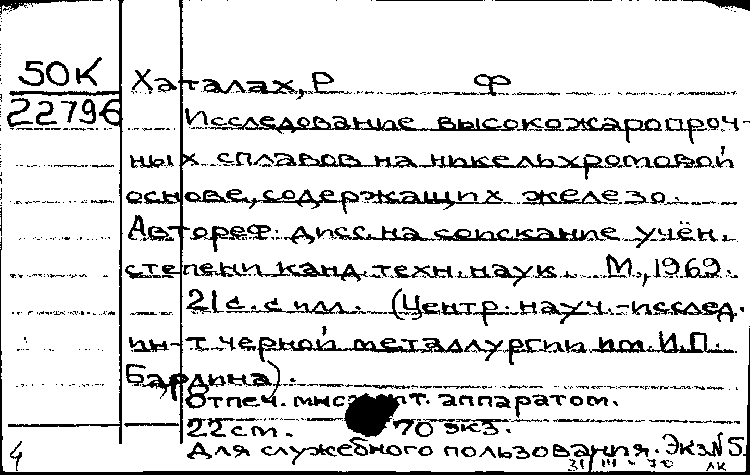 50К
22796
Хаталах, Р Ф
Исследование высокожаропроч-
ных сплавов на никельхромовой
основе, содержащих железо.
Автореф. дисс. на соискание учён.
степени канд. техн. наук. М., 1969.
21 с. с илл. (Центр. науч.-исслед.
ин-т черной металлургии им. И.П.
Бардина).
Отпеч. апп­аратом.
22 cm. 70 экз.
Для служебного пользования. Экз№5
4 31/III-70 лк